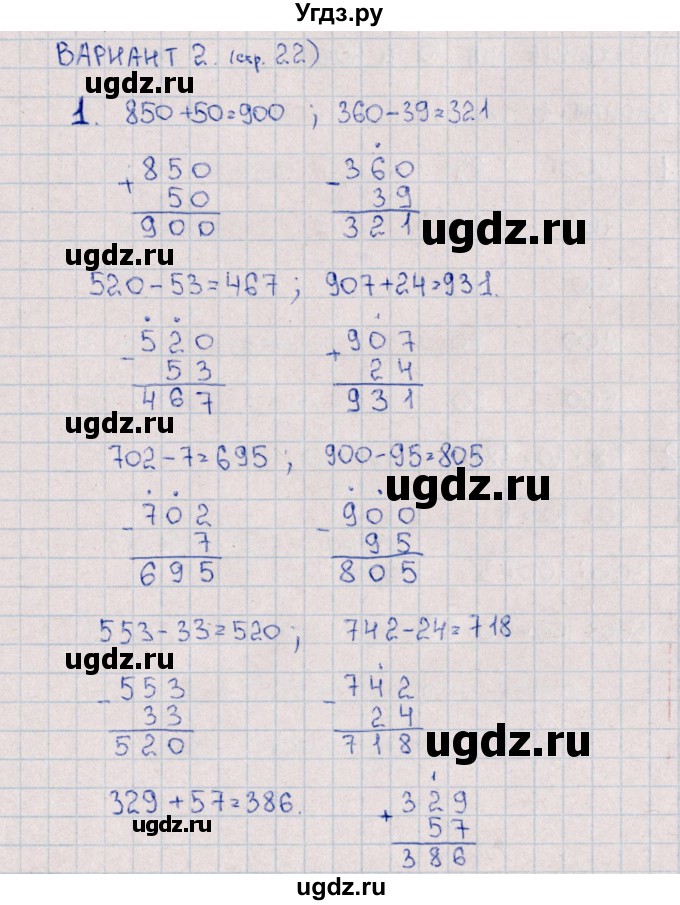 Угдз.ру
ВАРИАНТ 2. (стр. 22)
ugdz.ru
1. 850+50=900 ; 360-39=321
+ 850
50
900
- 360
39
321
ugdz.ru
ugdz.ru
520-53=467 ; 907+24=931.
- 520
53
467
+ 907
24
931
ugdz.ru
702-7=695 ; 900-95=805
ugdz.ru
- 702
7
695
- 900
95
805
553-33=520 ; 742-24=718
ugdz.ru
- 553
33
520
- 742
24
718
ugdz.ru
329+57=386.
ugdz.ru
+ 329
57
386
ugdz.ru